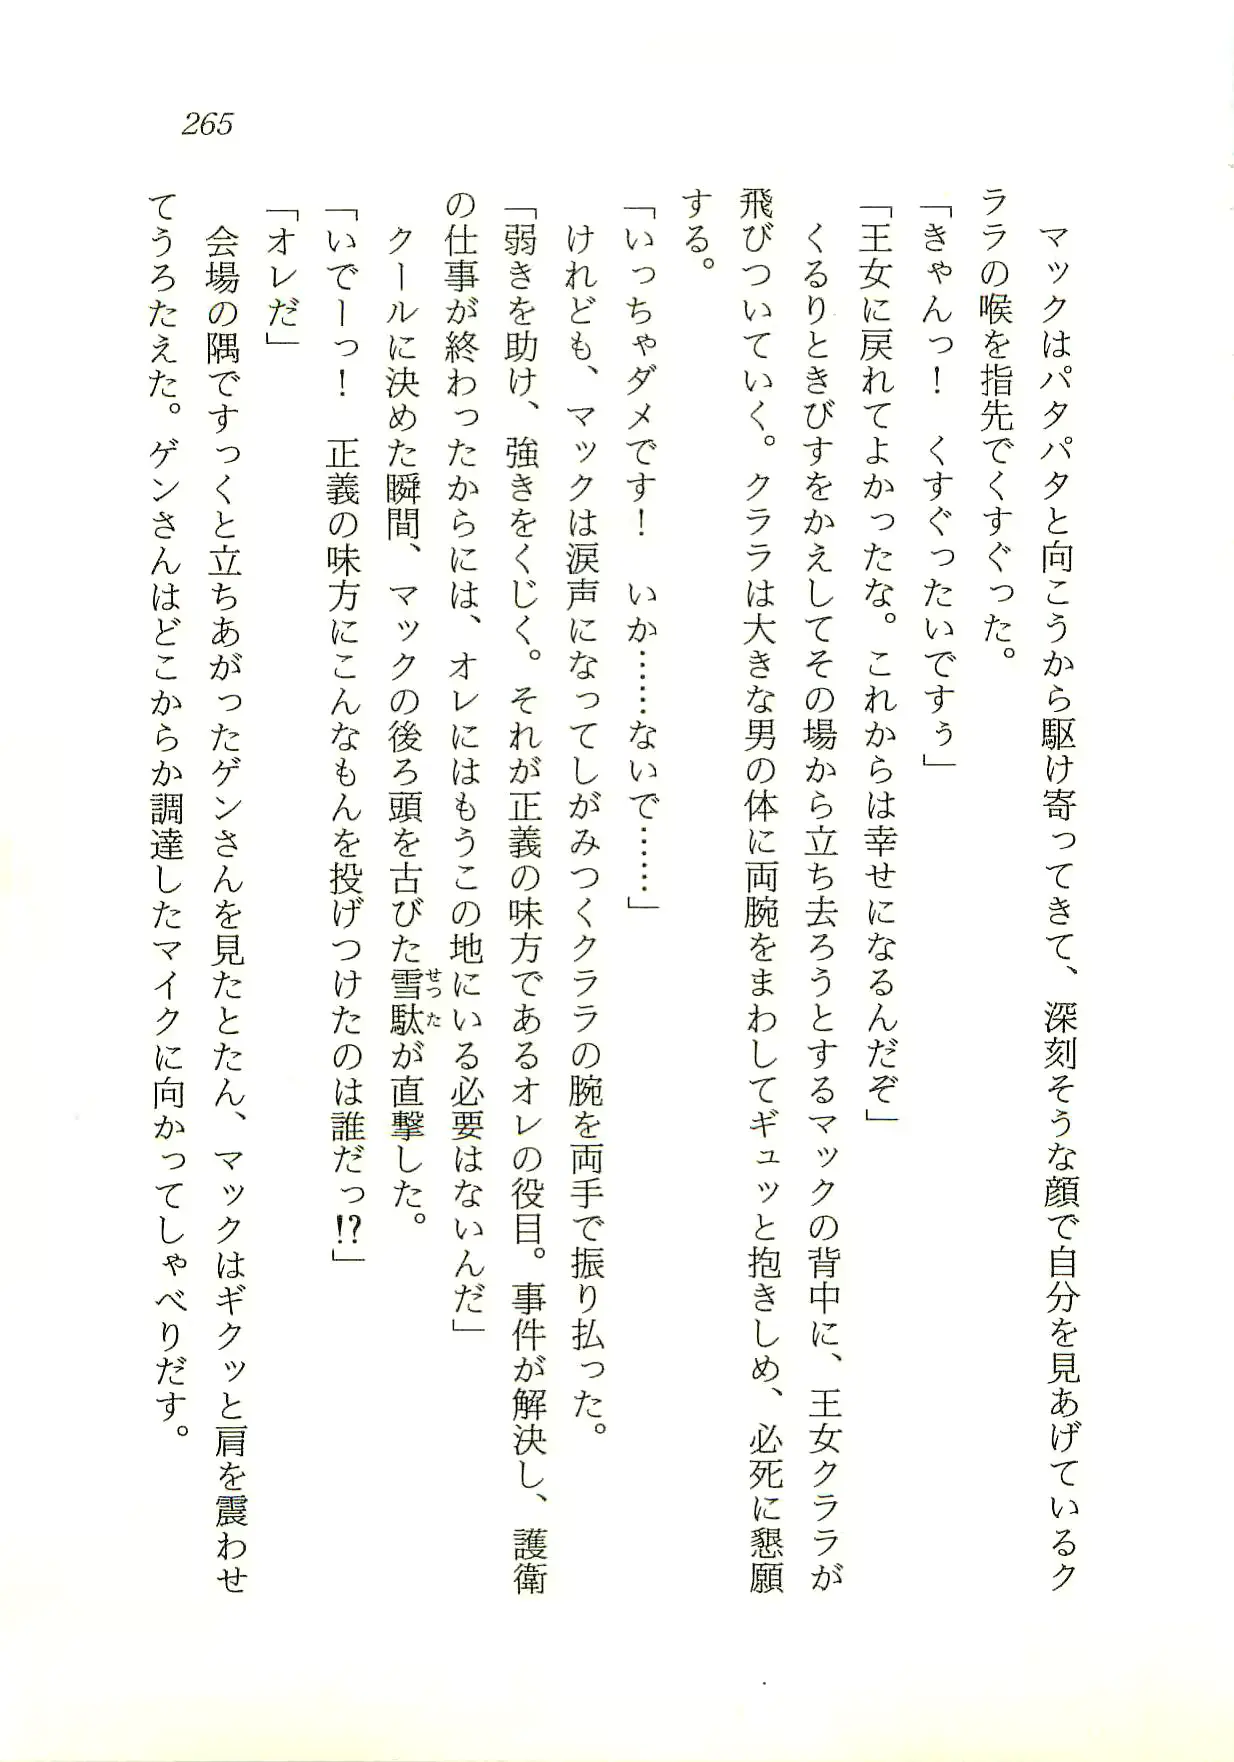 265
　マックはパタパタと向こうから駆け寄ってきて、深刻そうな顔で自分を見あげているク
ララの喉を指先でくすぐった。
「きゃんっ！　くすぐったいですぅ」
「王女に戻れてよかったな。これからは幸せになるんだぞ」
　くるりときびすをかえしてその場から立ち去ろうとするマックの背中に、王女クララが
飛びついていく。クララは大きな男の体に両腕をまわしてギュッと抱きしめ、必死に懇願
する。
「いっちゃダメです！　いか……ないで……」
　けれども、マックは涙声になってしがみつくクララの腕を両手で振り払った。
「弱きを助け、強きをくじく。それが正義の味方であるオレの役目。事件が解決し、護衛
の仕事が終わったからには、オレにはもうこの地にいる必要はないんだ」
　クールに決めた瞬間、マックの後ろ頭を古びた雪駄せったが直撃した。
「いでーっ！　正義の味方にこんなもんを投げつけたのは誰だっ!?」
「オレだ」
　会場の隅ですっくと立ちあがったゲンさんを見たとたん、マックはギクッと肩を震わせ
てうろたえた。ゲンさんはどこからか調達したマイクに向かってしゃべりだす。